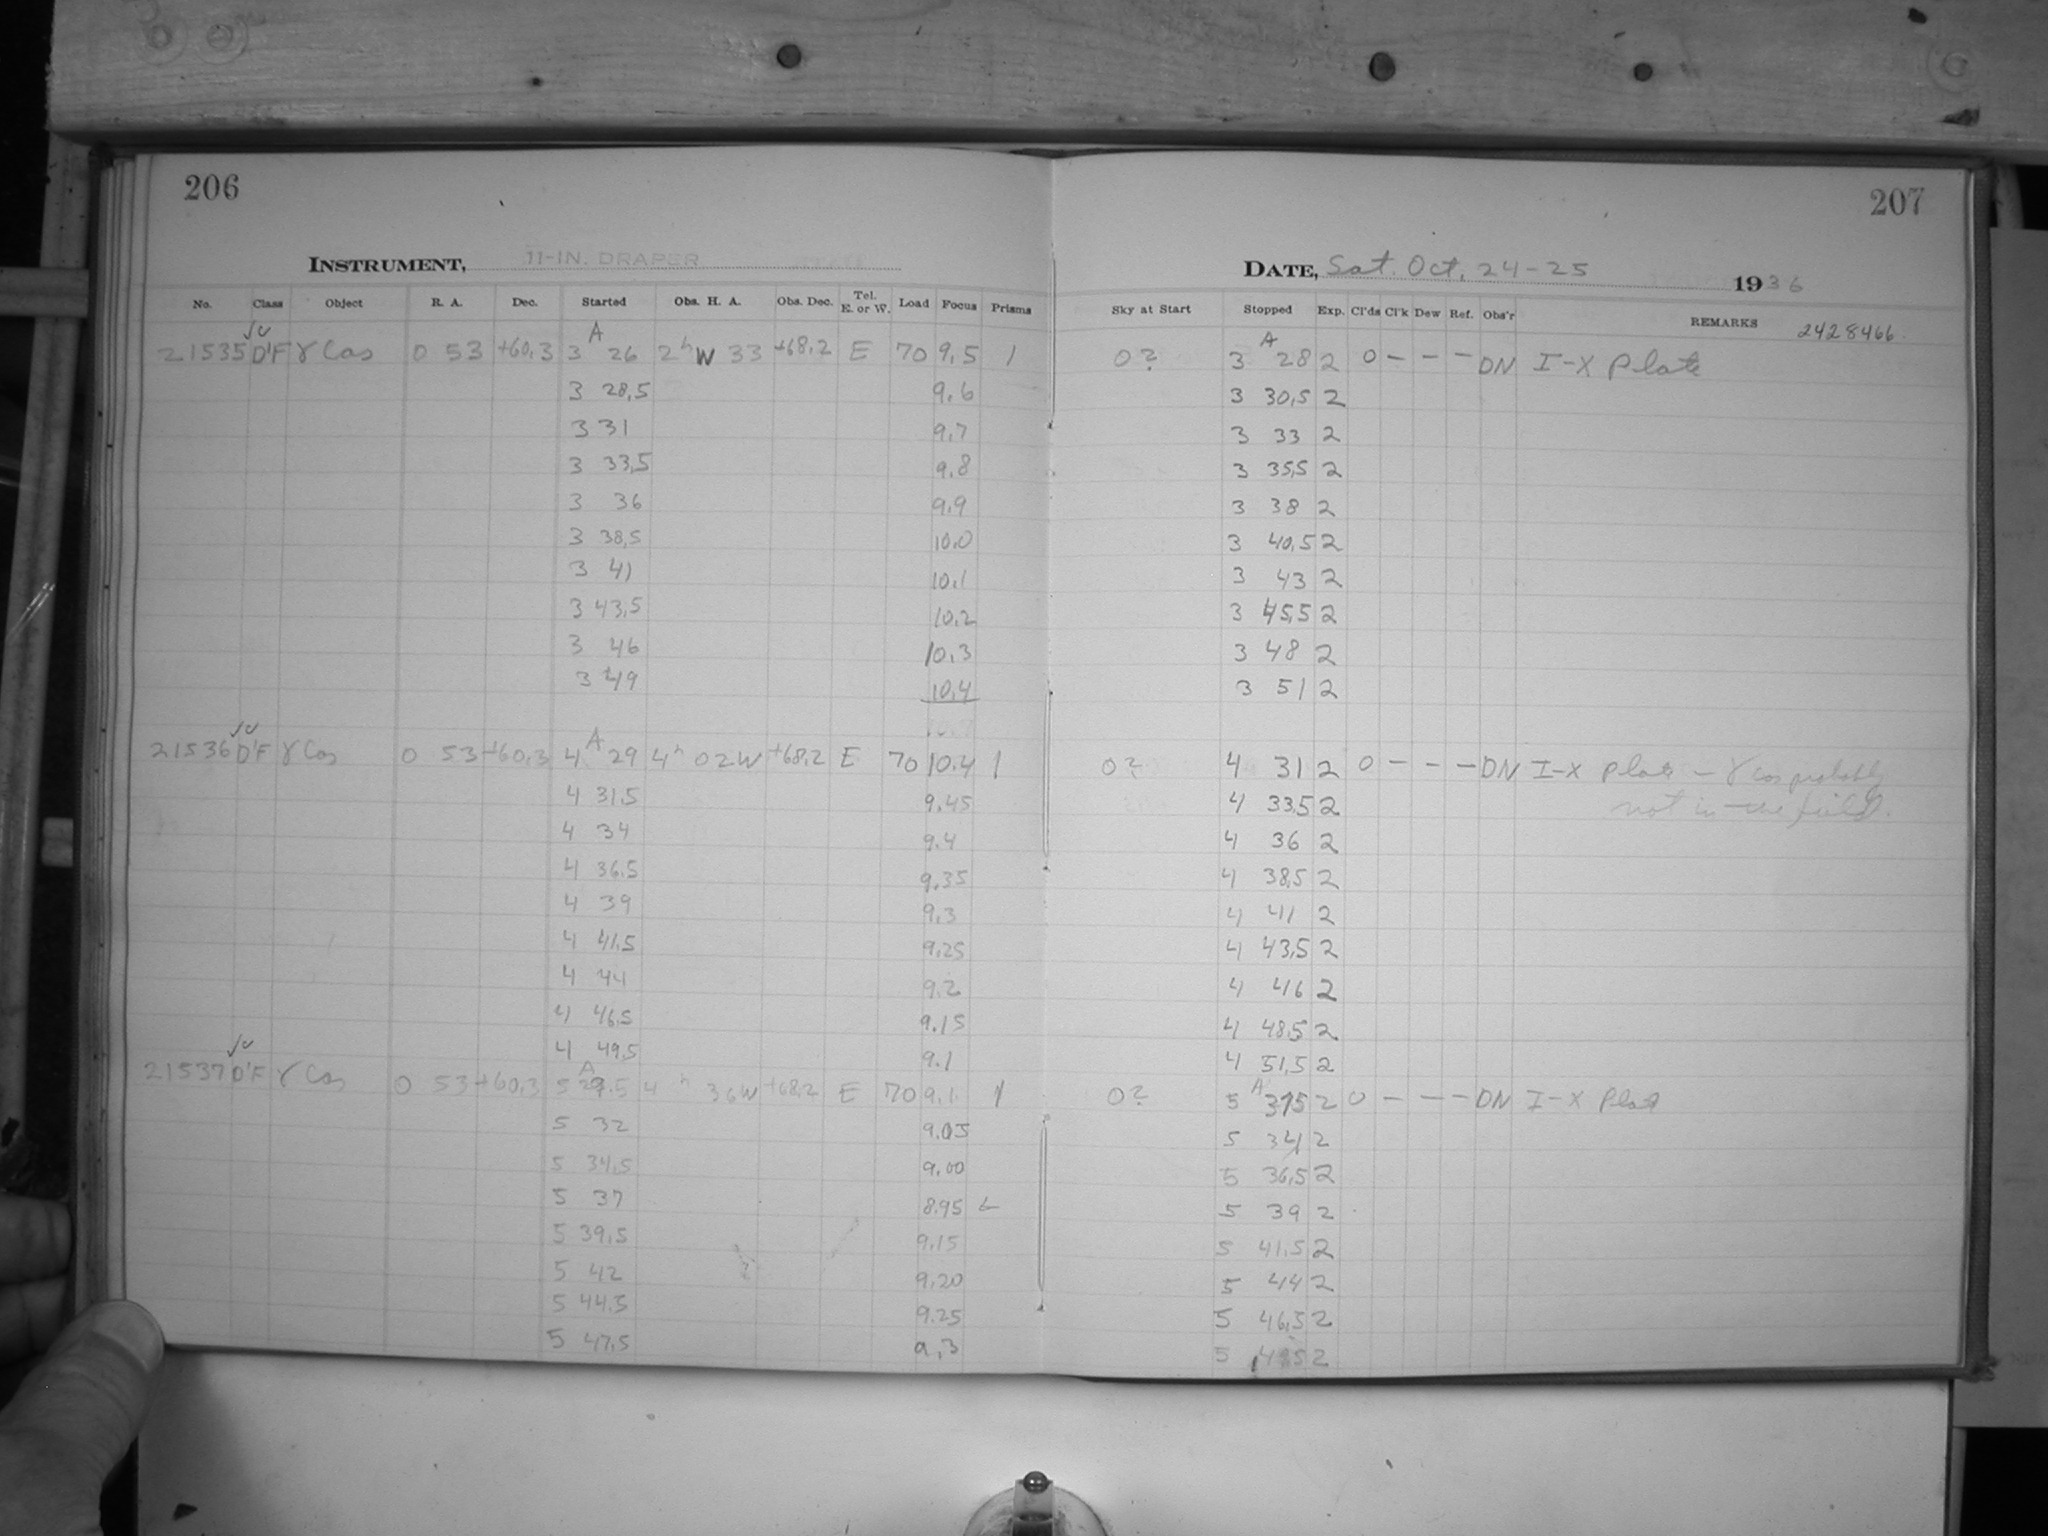 206
INSTRUMENT, 11-IN. DRAPER
No. Class Object R. A. Dec. Started Obs. H. A. Obs. Dec. Tel. E. or W. Load Focus Prisms
21535 D'F γ Cas 0 53 +60,3 3 A 26 2h W 33 +68,2 E 70 9,5 1
3 28,5 9.6
3 31 9,7
3 33,5 9,8
3 36 9,9
3 38,5 10.0
3 41 10,1
3 43,5 10,2
3 46 10,3
3 49 10,4
21536 D'F γ Cas 0 53 +60,3 4 A 29 4h 02W +68,2 E 70 10,4 1
4 31,5 9.45
4 34 9.4
4 36,5 9,35
4 39 9,3
4 41,5 9,25
4 44 9.2
4 46,5 9.15
4 49,5 9.1
21537 D'F γ Cas 0 53 +60,3 5 A 29.5 4h 36W +68,2 E 70 9.1 1
5 32 9.05
5 34,5 9,00
5 37 8.95
5 39,5 9,15
5 42 9,20
5 44,5 9.25
5 47,5 9,3
207
DATE, Sat. Oct, 24-25 1936
Sky at Start Stopped Exp. Cl'ds Cl'k Dew Ref. Obs'r REMARKS 2428466.
0? 3 A 28 2 0 - - - DN I-X Plate
3 30,5 2
3 33 2
3 35,5 2
3 38 2
3 40,5 2
3 43 2
3 45,5 2
3 48 2
3 51 2
0? 4 31 2 0 - - - DN I-X Plate - γ Cas probably
4 33,5 2 not in the field.
4 36 2
4 38,5 2
4 41 2
4 43,5 2
4 46 2
4 48,5 2
4 51,5 2
0? 5 A 31,5 2 0 - - - DN I-X Plate
5 34 2
5 36,5 2
5 39 2
5 41,5 2
5 44 2
5 46,5 2
5 2